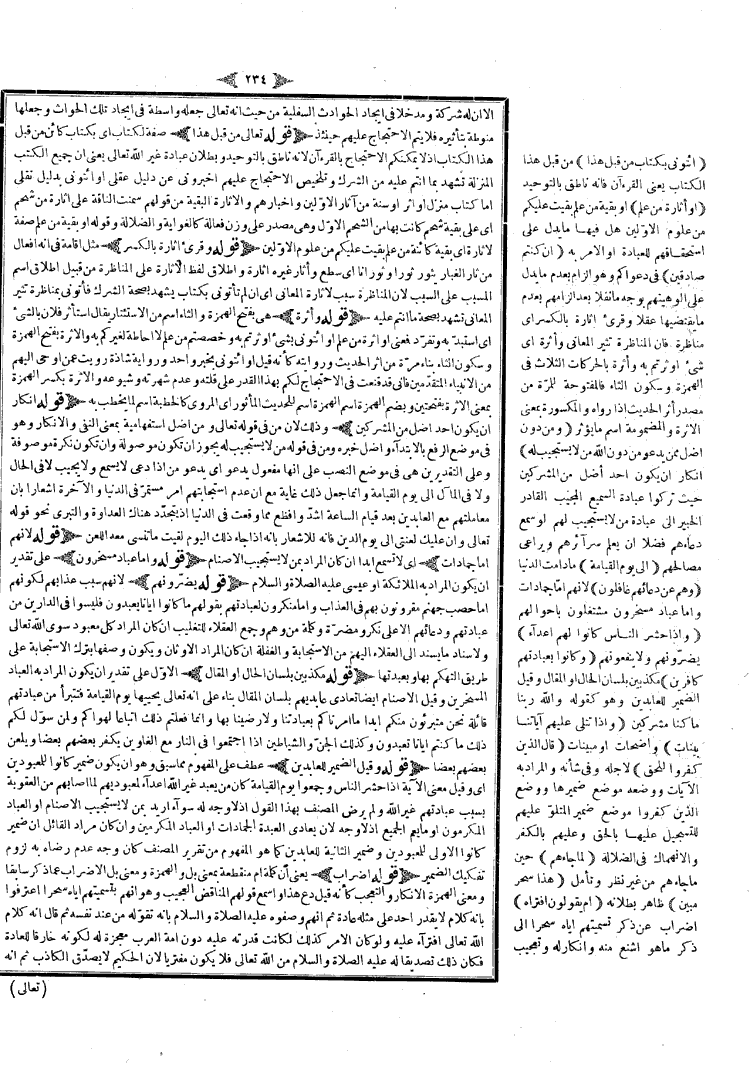 ٢٣٤
الا ان له شركة و مدخلا فى ايجاد الحوادث السفلية من حيث انه تعالى جعله واسطة فى ايجاد تلك الحواث و جعلها
منوطة بتأثيره فلا يتم الاحتجاج عليهم حينئذ قوله تعالى من قبل هذا صفة لكتاب اى بكتاب كائن من قبل
هذا الكتاب اذ لا يمكنكم الاحتجاج بالقرءآن لانه ناطق بالتوحيد و بطلان عبادة غير الله تعالى يعنى ان جميع الكتب
المنزلة تشهد بما انتم عليه من الشرك و تلخيص الاحتجاج عليهم اخبرونى عن دليل عقلى او ائتونى بدليل نقلى
اما كتاب منزل او اثر او سنة من آثار الاوّلين و اخبارهم و الاثارة البقية من قولهم سمنت الناقة على اثارة من شحم
اى على بقية شحم كانت بها من الشحم الاوّل وهى مصدر على وزن فعالة كالغواية و الضلالة و قوله او بقية من علم صفة
لاثارة اى بقية كائنة من علم بقيت عليكم من علوم الاوّلين قوله و قرئ اثارة بالكسر مثل اقامة فى انه افعال
من ثار الغبار يثور ثورا و ثورانا اى سطع و أثار غيره اثارة و اطلاق لفظ الاثارة على المناظرة من قبيل اطلاق اسم
المسبب على السبب لان المناظرة سبب لاثارة المعانى اى ان لم تأتونى بكتاب يشهد بصحة الشرك فأتونى بمناظرة تثير
المعانى تشهد بصحة ما انتم عليه قوله و أثرة هى بفتح الهمزة و الثاء اسم من الاستئثار يقال استأثر فلان بالشئ
اى استبدّ به و تفرّد فمعنى او اثرة من علم او ائتونى بشئ اوثرتم به و خصصتم من علم لا احاطة لغيركم به و الاثرة بفتح الهمزة
و سكون الثاء بناء مرة من اثر الحديث و روايته كأنه قيل او ائتونى بخبر واحد و رواية شاذة رويت عمن اوحى اليهم
من الانبياء المتقدّمين فانى قد قنعت فى الاحتجاج لكم بهذا القدر على قلته و عدم شهرته و شيوعه و الاثرة بكسر الهمزة
بمعنى الاثرة بفتحتين و بضم الهمزة اسم الهمزة اسم للحديث المأثور اى المروى كالخطبة اسم لما يخطب به قوله انكار
ان يكون احد اضل من المشركين و ذلك لان من فى قوله تعالى و من اضل استفهامية بمعنى النفى و الانكار و هو
فى موضع الرفع بالابتداء و اضل خبره و من فى قوله من لا يستجيب له يجوز ان تكون موصولة و ان تكون نكرة موصوفة
و على التقديرين هى فى موضع النصب على انها مفعول يدعو اى يدعو من اذا دعى لا يسمع و لا يجيب لا فى الحال
و لا فى المآل الى يوم القيامة و انما جعل ذلك غاية مع ان عدم استجابتهم امر مستمرّ فى الدنيا و الآخرة اشعارا بان
معاملتهم مع العابدين بعد قيام الساعة اشدّ و افظع مما وقعت فى الدنيا اذ يتجدّد هناك العداوة و التبرى نحو قوله
تعالى و ان عليك لعنتى الى يوم الدين فانه للاشعار بانه اذا جاء ذلك اليوم لقيت ما تنسى معه اللعن قوله لانهم
اما جمادات اى لا تسمع ابدا ان كان المراد بمن لا يستجيب الاصنام قوله و اما عباد مسخرون على تقدير
ان يكون المراد به الملائكة او عيسى عليه الصلاة و السلام قوله يضرّونهم لانهم سبب عذابهم لكونهم
اما حصب جهنم مقرونون بهم فى العذاب و اما منكرون لعبادتهم بقولهم ما كانوا ايانا يعبدون فليسوا فى الدارين من
عبادتهم و دعائهم الا على نكر و مضرّة و كلمة من و هم و جمع العقلاء للتغليب ان كان المراد كل معبود سوى الله تعالى
و لاسناد ما يسند الى العقلاء اليهم من الاستجابة و الغفلة ان كان المراد الاوثان و يكون و صفها بترك الاستجابة على
طريق التهكم بها و بعبدتها قوله مكذبين بلسان الحال او المقال الاوّل على تقدير ان يكون المراد به العباد
المسخرين و قيل الاصنام ايضا تعادى عابديهم بلسان المقال بناء على انه تعالى يحييها يوم القيامة فتتبرأ من عبادتهم
قائلة نحن متبرئون منكم ابدا ما امرناكم بعبادتنا و لا رضينا بها و انما فعلتم ذلك اتباعا لهواكم و لمن سوّل لكم
ذلك ما كنتم ايانا تعبدون و كذلك الجنّ و الشياطين اذا اجتمعوا فى النار مع الغاوين يكفر بعضهم بعضا و يلعن
بعضهم بعضا قوله و قيل الضمير للعابدين عطف على المفهوم مما سبق و هو ان يكون ضمير كانوا للمعبودين
اى و قيل معنى الآية اذا حشر الناس و جمعوا يوم القيامة كان من يعبد غير الله اعدآء لمعبوديهم لما اصابهم من العقوبة
بسبب عبادتهم غير الله و لم يرض المصنف بهذا القول اذ لا وجه له سوآء اريد بمن لا يستجيب الاصنام او العباد
المكرمون او ما يعم الجميع اذ لا وجه لان يعادى العبدة الجمادات او العباد المكرمين و ان كان مراد القائل ان ضمير
كانوا الاولى للمعبودين و ضمير الثانية للعابدين كما هو المفهوم من تقرير المصنف كان وجه عدم رضاه به لزوم
تفكيك الضمير قوله اضراب يعنى أن كلمة ام منقطعة بمعنى بل و الهمزة و معنى بل الاضراب عما ذكر سابقا
و معنى الهمزة الانكار و التعجب كأنه قيل دع هذا و اسمع قولهم المناقض العجيب و هو انهم بتسميتهم اياه سحرا اعترفوا
بانه كلام لا يقدر احد على مثله عادة ثم انهم و صفوه عليه الصلاة و السلام بانه تقوّله من عند نفسه ثم قال انه كلام
الله تعالى افترآء عليه و لو كان الامر كذلك لكانت قدرته عليه دون امة العرب معجزة له لكونه خارقا للعادة
فكان ذلك تصديقا له عليه الصلاة و السلام من الله تعالى فلا يكون مفتريا لان الحكيم لا يصدّق الكاذب ثم انه
(تعالى)
( ائتونى بكتاب من قبل هذا ) من قبل هذا
الكتاب يعنى القرءآن فانه ناطق بالتوحيد
( او أثارة من علم ) او بقية من علم بقيت عليكم
من علوم الاوّلين هل فيها ما يدل على
استحقاقهم للعبادة او الامر به ( ان كنتم
صادقين ) فى دعواكم و هو الزام بعدم ما يدل
على الوهيتهم بوجه ما نقلا بعد الزامهم بعدم
ما يقتضيها عقلا و قرئ اثارة بالكسر اى
مناظرة فان المناظرة تثير المعانى و أثرة اى
شئ اوثرتم به و أثرة بالحركات الثلاث فى
الهمزة و سكون الثاء فالمفتوحة للمرّة من
مصدر أثر الحديث اذا رواه و المكسورة بمعنى
الاثرة و المضمومة اسم ما يؤثر ( و من
اضل ممن يدعو من دون الله من لا يستجيب له )
انكار ان يكون احد أضل من المشركين
حيث تركوا عبادة السميع المجيب القادر
الخبير الى عبادة من لا يستجيب لهم لو سمع
دعاءهم فضلا ان يعلم سرآئرهم و يراعى
مصالحهم ( الى يوم القيامة ) ما دامت الدنيا
( وهم عن دعائهم غافلون ) لانهم اما جمادات
و اما عباد مسخرون مشتغلون باحوالهم
( و اذا حشر الناس كانوا لهم اعدآء )
يضرّونهم و لا ينفعونهم ( و كانوا بعبادتهم
كافرين ) مكذبين بلسان الحال او المقال و قيل
الضمير للعابدين و هو كقوله و الله ربنا
ما كنا مشركين ( و اذا تتلى عليهم آياتنا
بينات ) واضحات او مبينات ( قال الذين
كفروا للحق ) لاجله و فى شأنه و المراد به
الآيات و وضعه موضع ضميرها و وضع
الذين كفروا موضع ضمير المتلوّ عليهم
للتسجيل عليها بالحق و عليهم بالكفر
و الانهماك فى الضلالة ( لما جاءهم ) حين
ما جاءهم من غير نظر و تأمل ( هذا سحر
مبين ) ظاهر بطلانه ( ام يقولون افتراه )
اضراب عن ذكر تسميتهم اياه سحرا الى
ذكر ما هو اشنع منه و انكار له و تعجيب